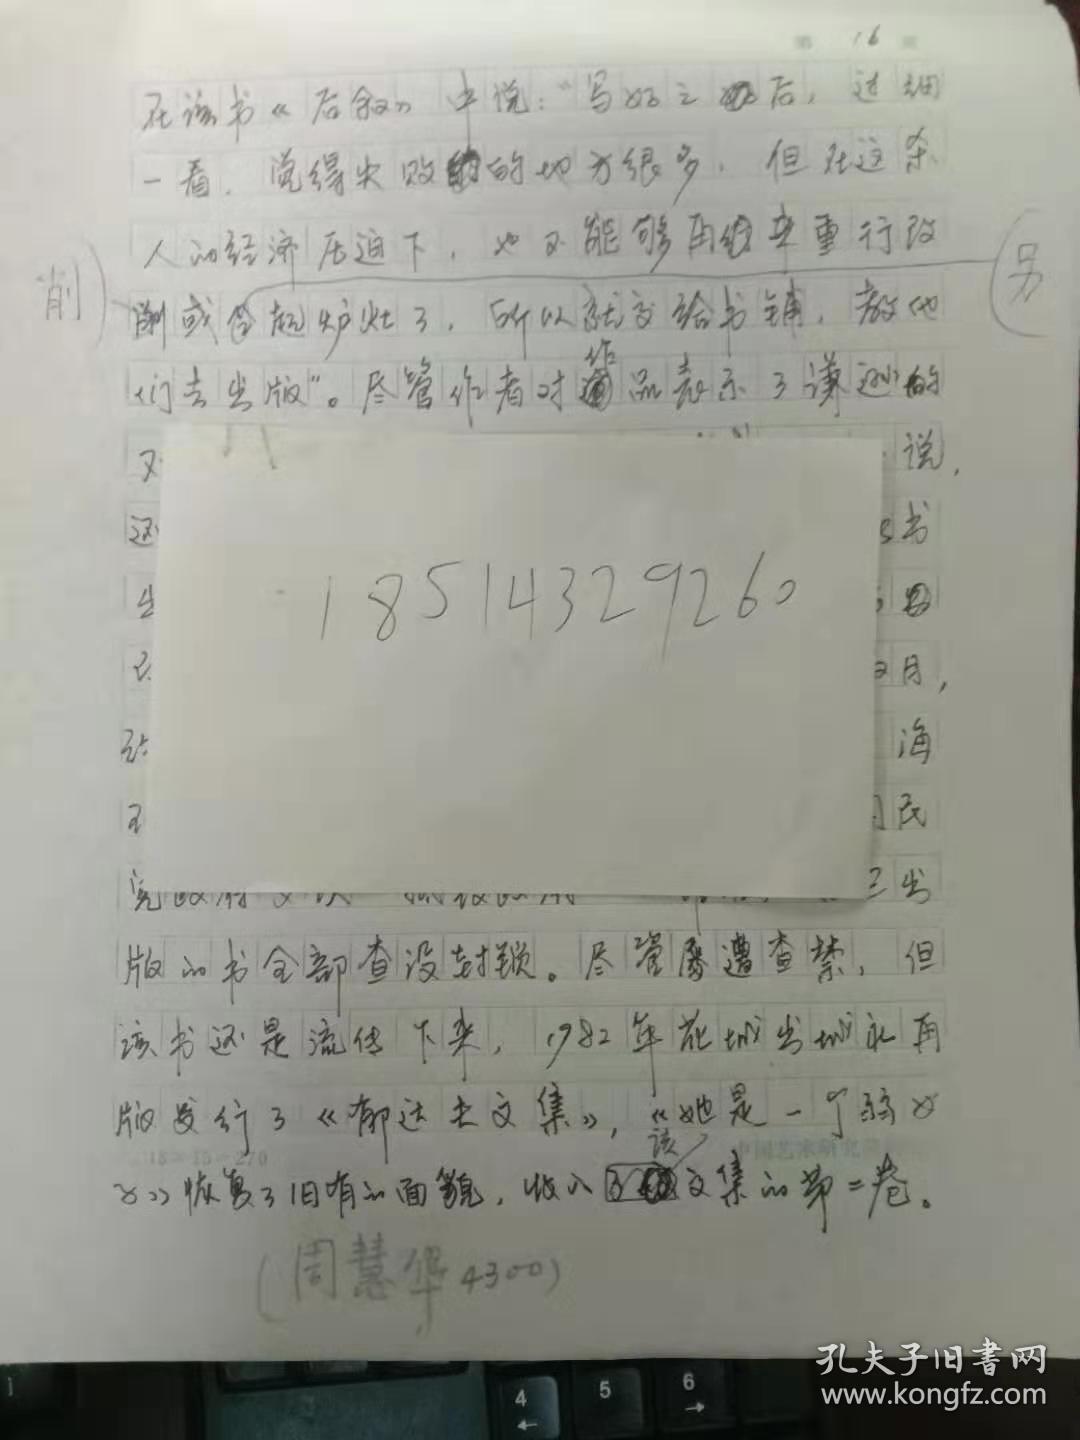 第 16 页
在该书《后叙》中说：“写好之后，过细
一看，觉得失败的地方很多，但在这杀
人的经济压迫下，也不能够再来重行改
削或另起炉灶了，所以就交给书铺，教他
们去出版”。尽管作者对作品表示了谦逊的
削
另
说，
还
书
18514329260
月，
海
民
三出
版的书全部查没封锁。尽管屡遭查禁，但
该书还是流传下来，1982年花城出城社再
版发行了《郁达夫文集》，《她是一个弱女
该
18×15=270
中国艺术研究
》恢复了旧有的面貌，收入文集的第二卷。
（周慧华 4300）
4
5
6
孔夫子旧書网
www.kongfz.com